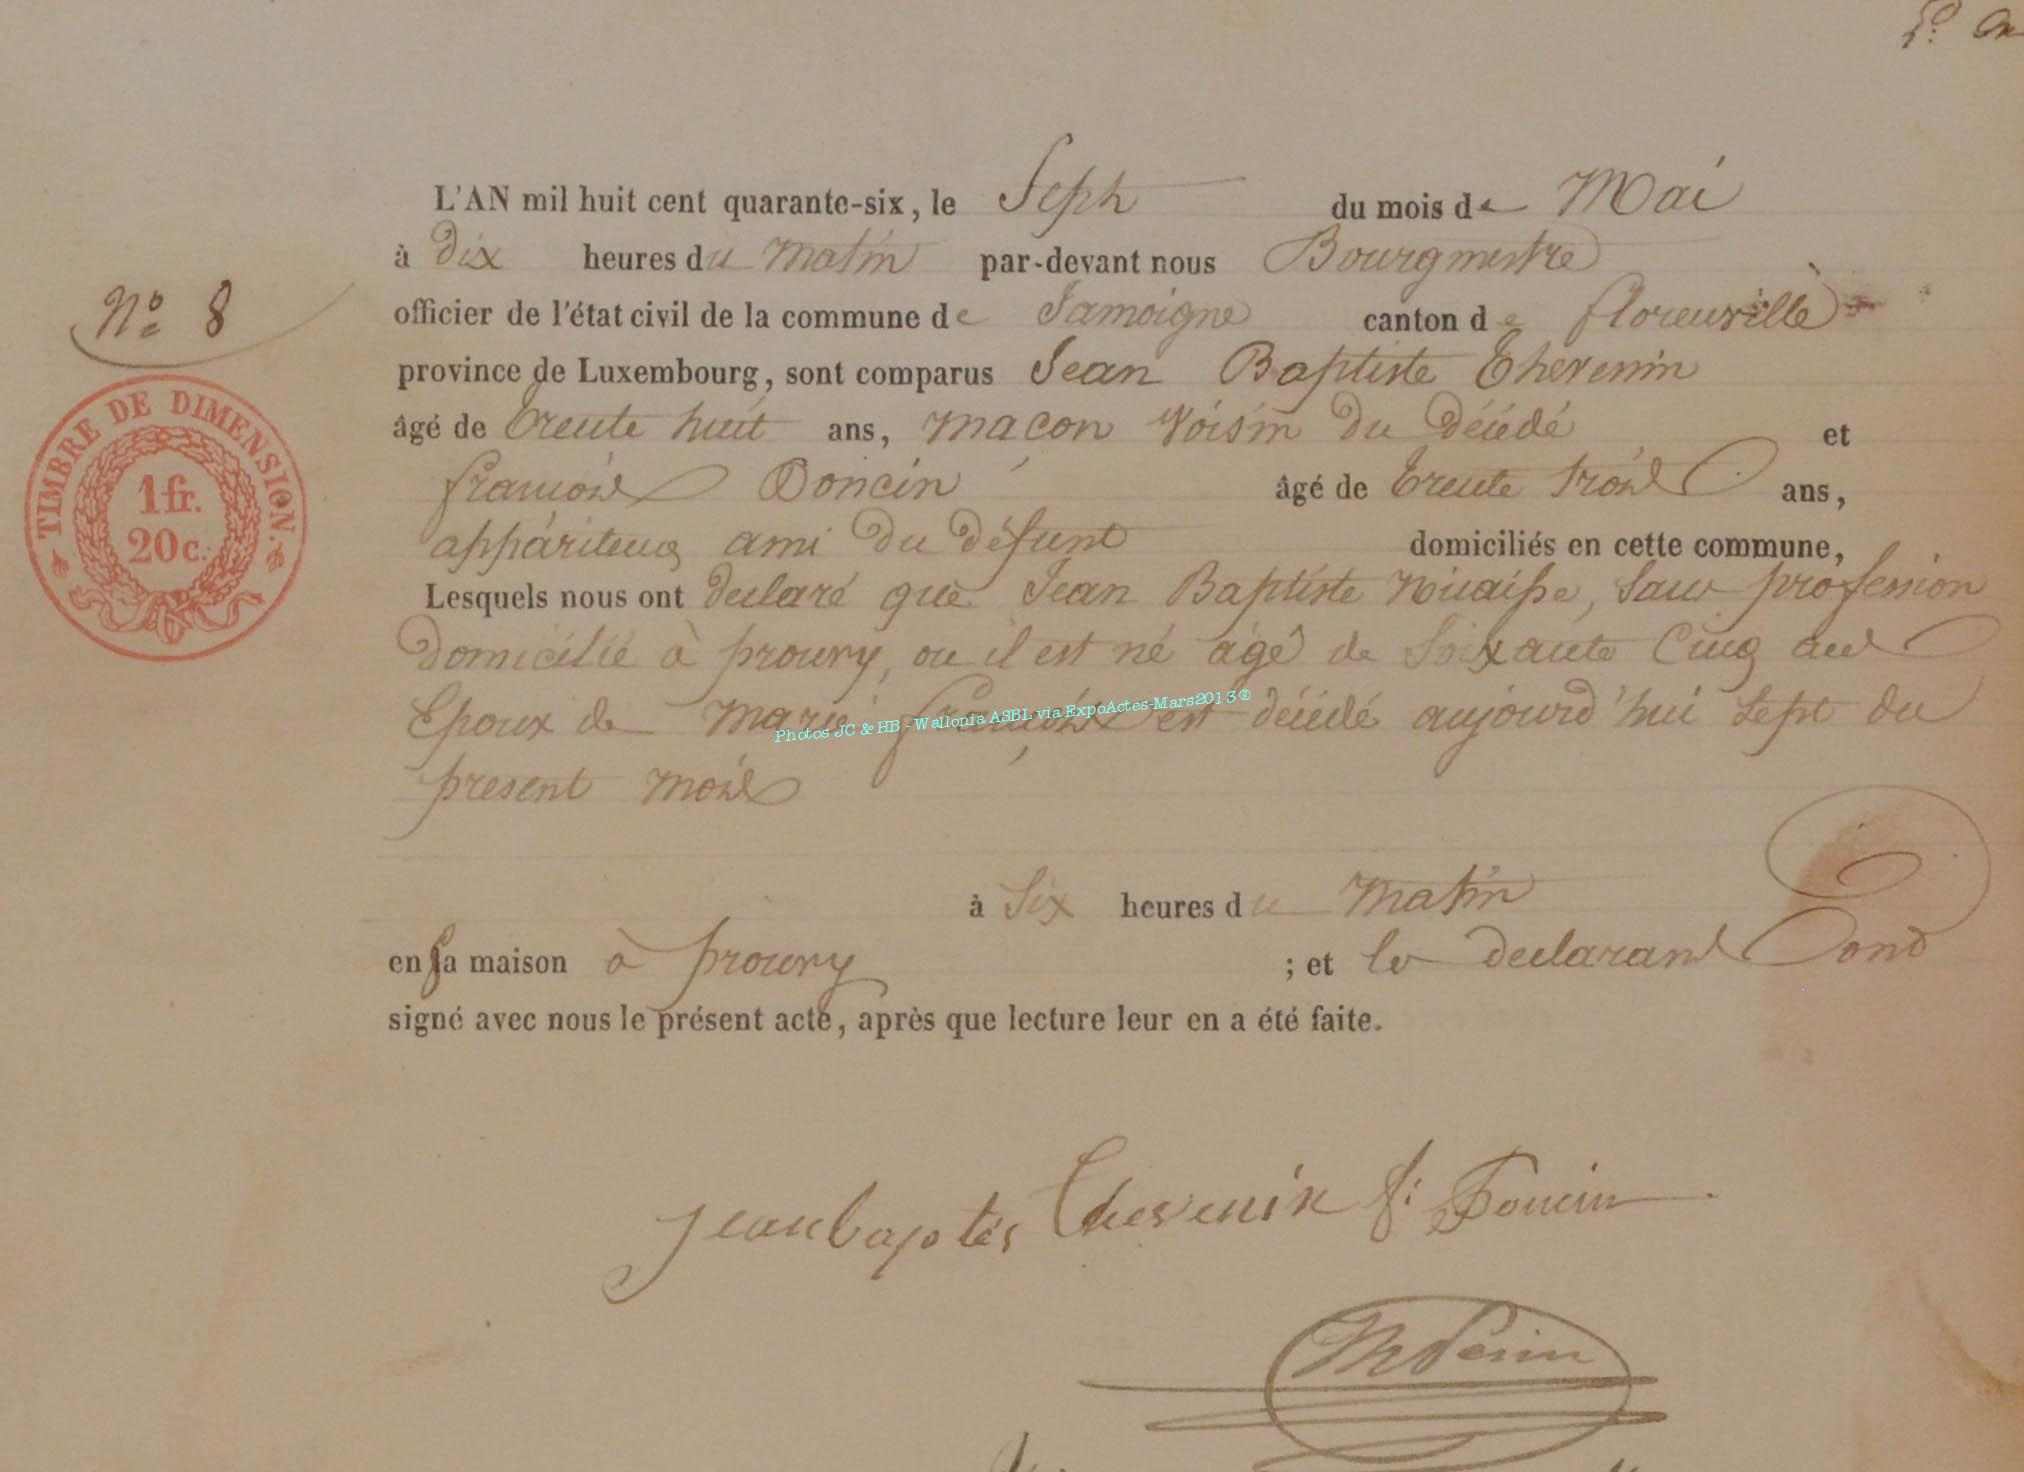 N° 8
TIMBRE DE DIMENSION.
1 fr.
20 c.
L'AN mil huit cent quarante-six, le Sept du mois de Mai
à Dix heures du Matin par-devant nous Bourgmestre
officier de l'état civil de la commune de Jamoigne canton de florenville
province de Luxembourg, sont comparus Jean Baptiste Thevenin
âgé de trente huit ans, maçon voisin du décédé et
françois Doncin âgé de trente trois ans,
appariteur ami du défunt domiciliés en cette commune,
Lesquels nous ont declaré que Jean Baptiste Nicaisse, sans profession
domicilié à prouvy, ou il est né agé de Soixante Cinq ans
Epoux de Marie françoise est décédé aujourd'hui Sept du
present mois
Photos JC & HB - Wallonia ASBL via ExpoActes-Mars2013®
à Six heures du Matin
en sa maison à prouvy ; et les declarans ont
signé avec nous le présent acte, après que lecture leur en a été faite.
jeanbaptes Thevenin f: Doncin